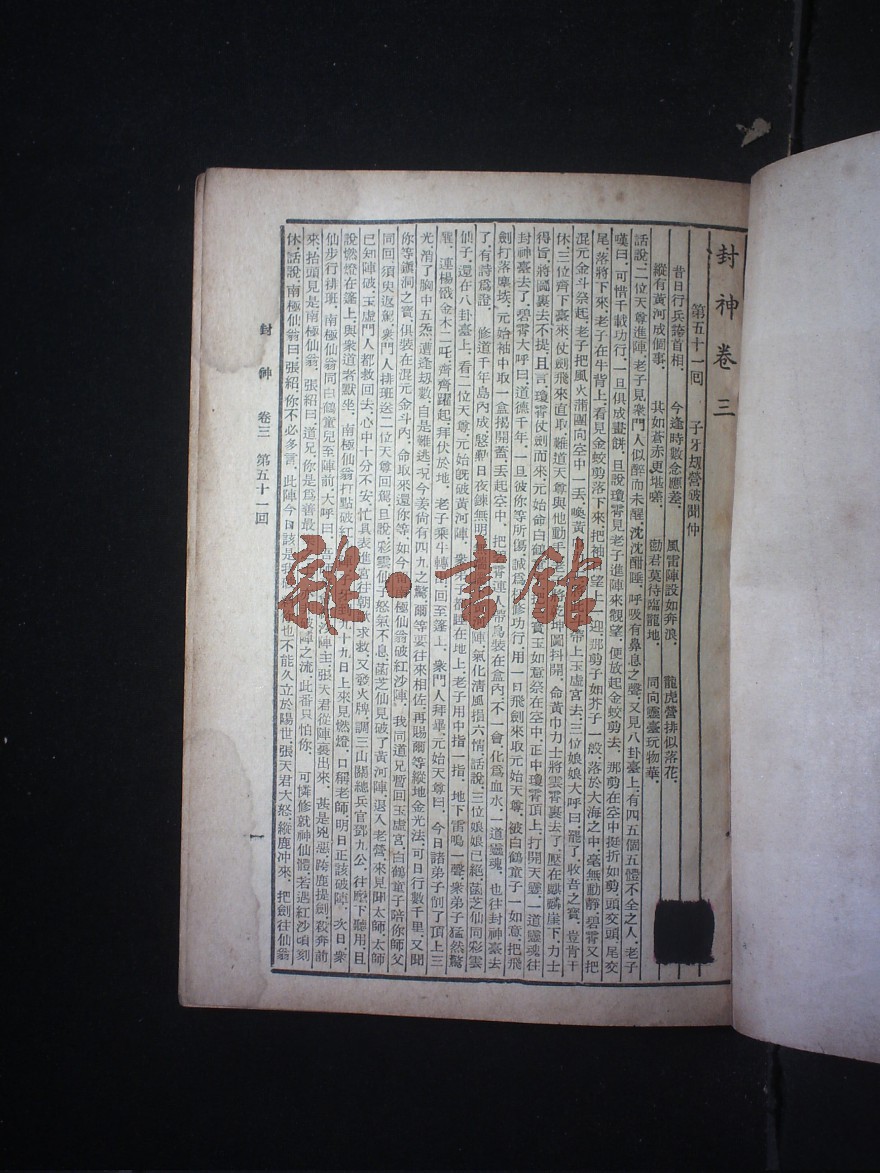 封神卷三
第五十一回 子牙刼營破聞仲
昔日行兵誇首相。 今逢時數念應差。 風雷陣設如奔浪。 龍虎營排似落花。
縱有黃河成個事。 其如蒼赤更堪嗟。 勸君莫待臨龍地。 同向靈臺玩物華。
話說二位天尊進陣。老子見衆門人似醉而未醒。沈沈酣睡。呼吸有鼻息之聲。又見八卦臺上。有四五個五體不全之人。老子
嘆曰。可惜千載功行。一旦俱成畫餅。且說瓊霄見老子進陣來觀望。便放起金蛟剪去。那剪在空中挺折如剪。頭交頭。尾交
尾。落將下來。老子在牛背上看見金蛟剪落下來。把袖口望上一迎。那剪子如芥子一般。落於大海之中。毫無動靜。碧霄又把
混元金斗祭起。老子把風火蒲團向空中一丟。喚黃巾 上玉虛宮去。三位娘娘大呼曰。罷了。收吾之寶。豈肯干
休。三位齊下臺來。仗劍飛來直取。難道天尊與他動手 乾坤圖抖開。命黃巾力士將雲霄裹去了。壓在麒麟崖下。力士
得旨。將圖裹去不提。且言瓊霄仗劍而來。元始命白鶴 寶玉如意祭在空中。正中瓊霄頂上。打開天靈。一道靈魂往
封神臺去了。碧霄大呼曰。道德千年。一旦被你等所傷。誠爲枉修功行。用一口飛劍來取元始天尊。被白鶴童子一如意。把飛
劍打落塵埃。元始袖中取一盒。揭開蓋。丟起空中。把碧霄連 爲裝在盒內。不一會。化爲血水。一道靈魂。也往封神臺去
了。有詩爲證。 修道千年島內成。慇懃日夜鍊無明。 陣。氣化清風指六情。話說三位娘娘已絕。菡芝仙同彩雲
仙子。還在八卦臺上。看二位天尊。元始旣破黃河陣。衆弟 睡在地上。老子用中指一指。地下雷鳴一聲。衆弟子猛然驚
醒。連楊戩金木二吒。齊齊躍起。拜伏於地。老子乘牛轉 回至篷上。衆門人拜畢。元始天尊曰。今日諸弟子削了頂上三
光。消了胸中五炁。遭逢刼數。自是難逃。况今姜尙有四九之驚。爾等要往來相佐。再賜爾等縱地金光法。可日行數千里。又聞
你等鎭洞之寶。俱裝在混元金斗內。命取來還你等。如今 南極仙翁破紅沙陣。我同道兄暫回玉虛宮。白鶴童子陪你師父
同回。須臾返駕。衆門人排班。送二位天尊回駕。且說彩雲仙子怒氣不息。菡芝仙見破了黃河陣。退入老營。來見聞太師。太師
已知陣破。玉虛門人都救回去。心中十分不安。忙具表進宮往朝歌求救。又發火牌。調三山關總兵官鄧九公。往麾下聽用。且
說燃燈在篷上。與衆道者默坐。南極仙翁打點破紅 九十九日上。來見燃燈。口稱老師。明日正該破陣。次日。衆
仙步行排班。南極仙翁同白鶴童兒至陣前大呼曰。吾 沙陣主。張天君從陣裏出來。甚是兇惡。跨鹿提劍。殺奔前
來。抬頭見是南極仙翁。張紹曰。道兄。你是爲善最 破陣之流。此番只怕你。可憐修就神仙體。若遇紅沙頃刻
休。話說南極仙翁曰。張紹。你不必多言。此陣今日該是我 也不能久立於陽世。張天君大怒。縱鹿冲來。把劍往仙翁
封神 卷三 第五十一回
一
雜·書館